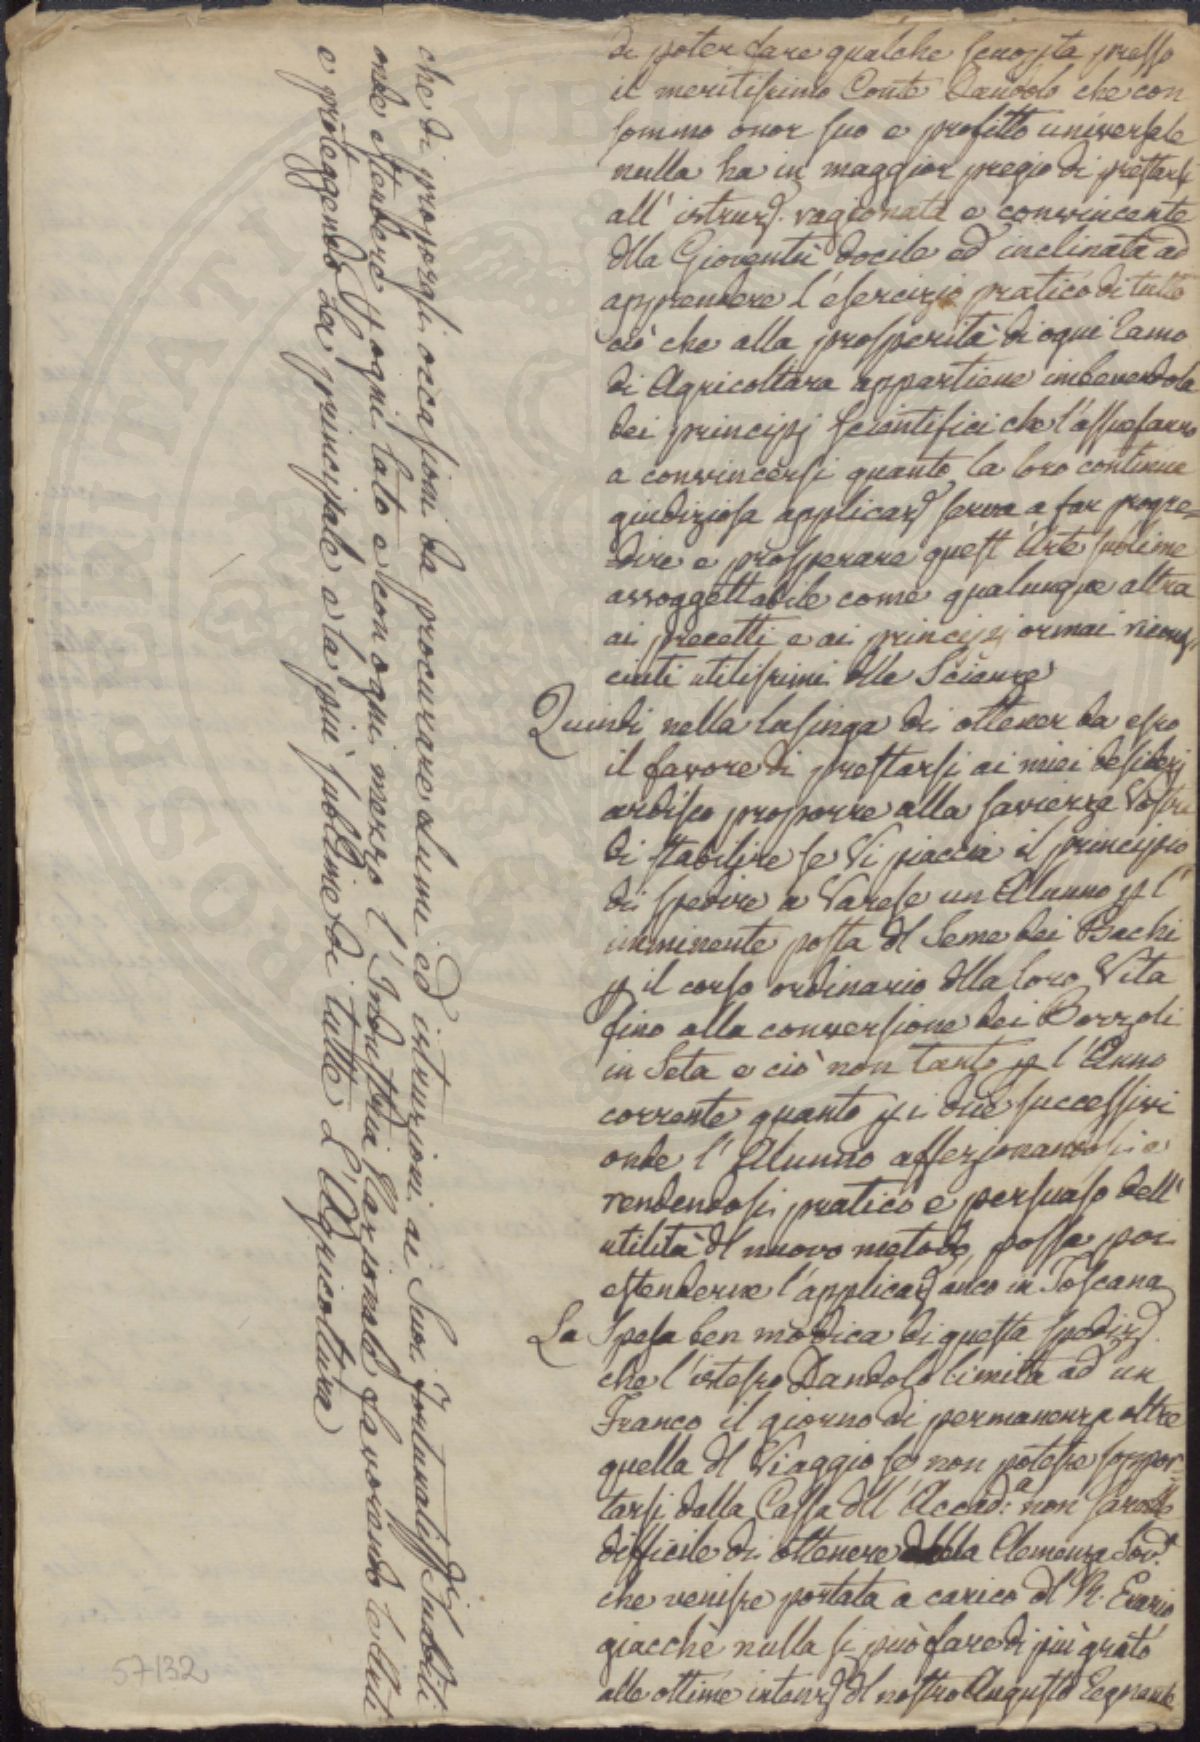 di poter fare qualche scuopta presso
il meritissimo Conte Dandolo che con
sommo onor suo e profitto universale
nulla ha in maggior pregio di prestarsi
all' istruz.e ragionata e convincente
dlla Gioventù docile ed inclinata ad
apprendere l'esercizio pratico di tutto
ciò che alla prosperità di ogni ramo
di Agricoltura appartiene imbevendola
dei principj scientifici che l'assuefanno
a convincersi quanto la loro continua
giudiziosa applicaz.e serva a far progre=
dire e prosperare quest' arte sublime
assoggettabile come qualunque altra
ai precetti e ai principj ormai ricono
ciuti utilissimi dlle Scienze
Quindi nella lusinga di ottener da esso
il favore di prestarsi ai miei desiderj
ardisco proporre alla saviezza Vostra
di stabilire se Vi piaccia il principio
di spedire a Varese un Alunno p l'
imminente posta dl Seme dei Bachi
p il corso ordinario dlla loro Vita
fino alla conversione dei Bozzoli
in Seta e ciò non tanto p l'Anno
corrente quanto p i due successivi
onde l'Alunno affezionandosi e
rendendosi pratico e persuaso dell'
utilità dl nuovo metodo possa poi
estenderne l'applicaz.e anco in Toscana
La Spesa ben modica di questa spediz.e
che l'istesso Dandolo limita ad un
Franco il giorno di permanenza oltre
quella dl Viaggio se non potesse soppor-
tarsi dalla Cassa dll' Accad.a non sarebbe
difficile di ottenere dalla Clemenza Sov.a
che venisse portata a carico dl R. Erario
giacchè nulla si può fare di più grato
alle ottime intenz.i dl nostro Augusto Regnante
che di proporgli occasioni da procurare lumi ed istruzioni ai Suoi Fortunatiss.i Sudditi
onde estendere p ogni lato e con ogni mezzo l'Industria Nazionale favorendo le Arti
e proteggendo la principale e la più sublime di tutte L'Agricoltura
57132